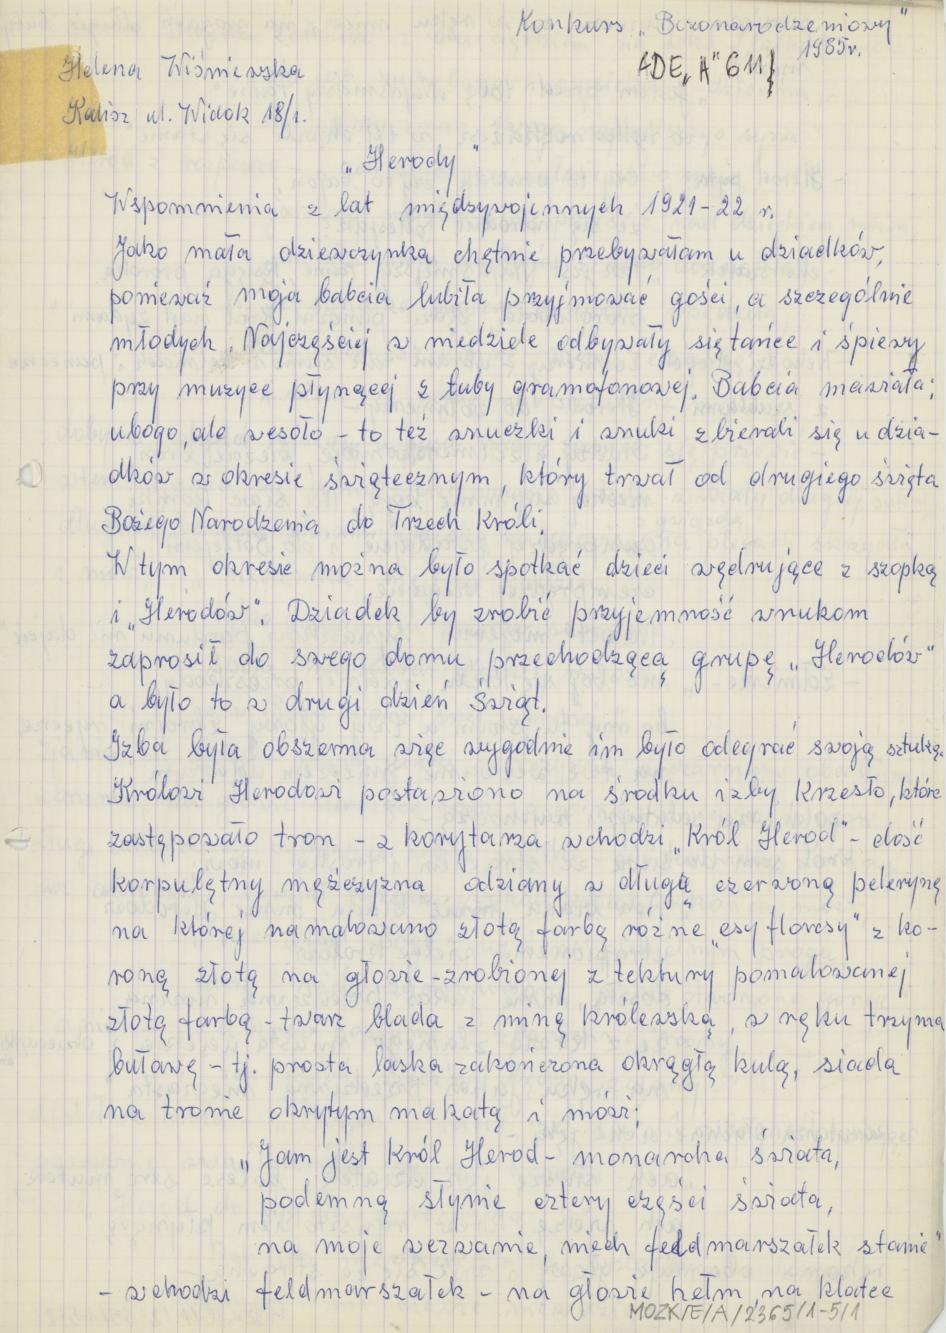 Konkurs „Bożonarodzeniowy"
1985r.
ADE „A" 611
Helena Wiśniewska
Kalisz ul. Widok 18/1.
„Herody"
Wspomnienia z lat międzywojennych 1921-22 r.
Jako mała dziewczynka chętnie przebywałam u dziadków,
ponieważ moja babcia lubiła przyjmować gości, a szczególnie
młodych. Najczęściej w niedziele odbywały się tańce i śpiewy
przy muzyce płynącej z tuby gramofonowej. Babcia mawiała:
ubogo, ale wesoło - to też wnuczki i wnuki zbierali się u dzia-
dków w okresie świątecznym, który trwał od drugiego święta
Bożego Narodzenia do Trzech Króli;
W tym okresie można było spotkać dzieci wędrujące z szopką
i „Herodów". Dziadek by zrobić przyjemność wnukom
zaprosił do swego domu przechodzącą grupę „Herodów"
a było to w drugi dzień Świąt.
Izba była obszerna więc wygodnie im było odegrać swoją sztukę.
Królowi Herodowi postawiono na środku izby krzesło, które
zastępowało tron - z korytarza wchodzi „Król Herod" - dość
korpulętny mężczyzna odziany w długą czerwoną pelerynę
na której namalowano złotą farbą różne „esy floresy" z ko-
roną złotą na głowie - zrobionej z tektury pomalowanej
złotą farbą - twarz blada z miną królewską, w ręku trzyma
buławę - tj. prosta laska zakończona okrągłą kulą, siada
na tronie okrytym makatą i mówi:
„Jam jest Król Herod - monarcha świata,
podemną słynie cztery części świata,
na moje wezwanie, niech feldmarszałek stanie"
- wchodzi feldmarszałek - na głowie hełm, na klatce
MOZK/E/A/2365/1-5/1